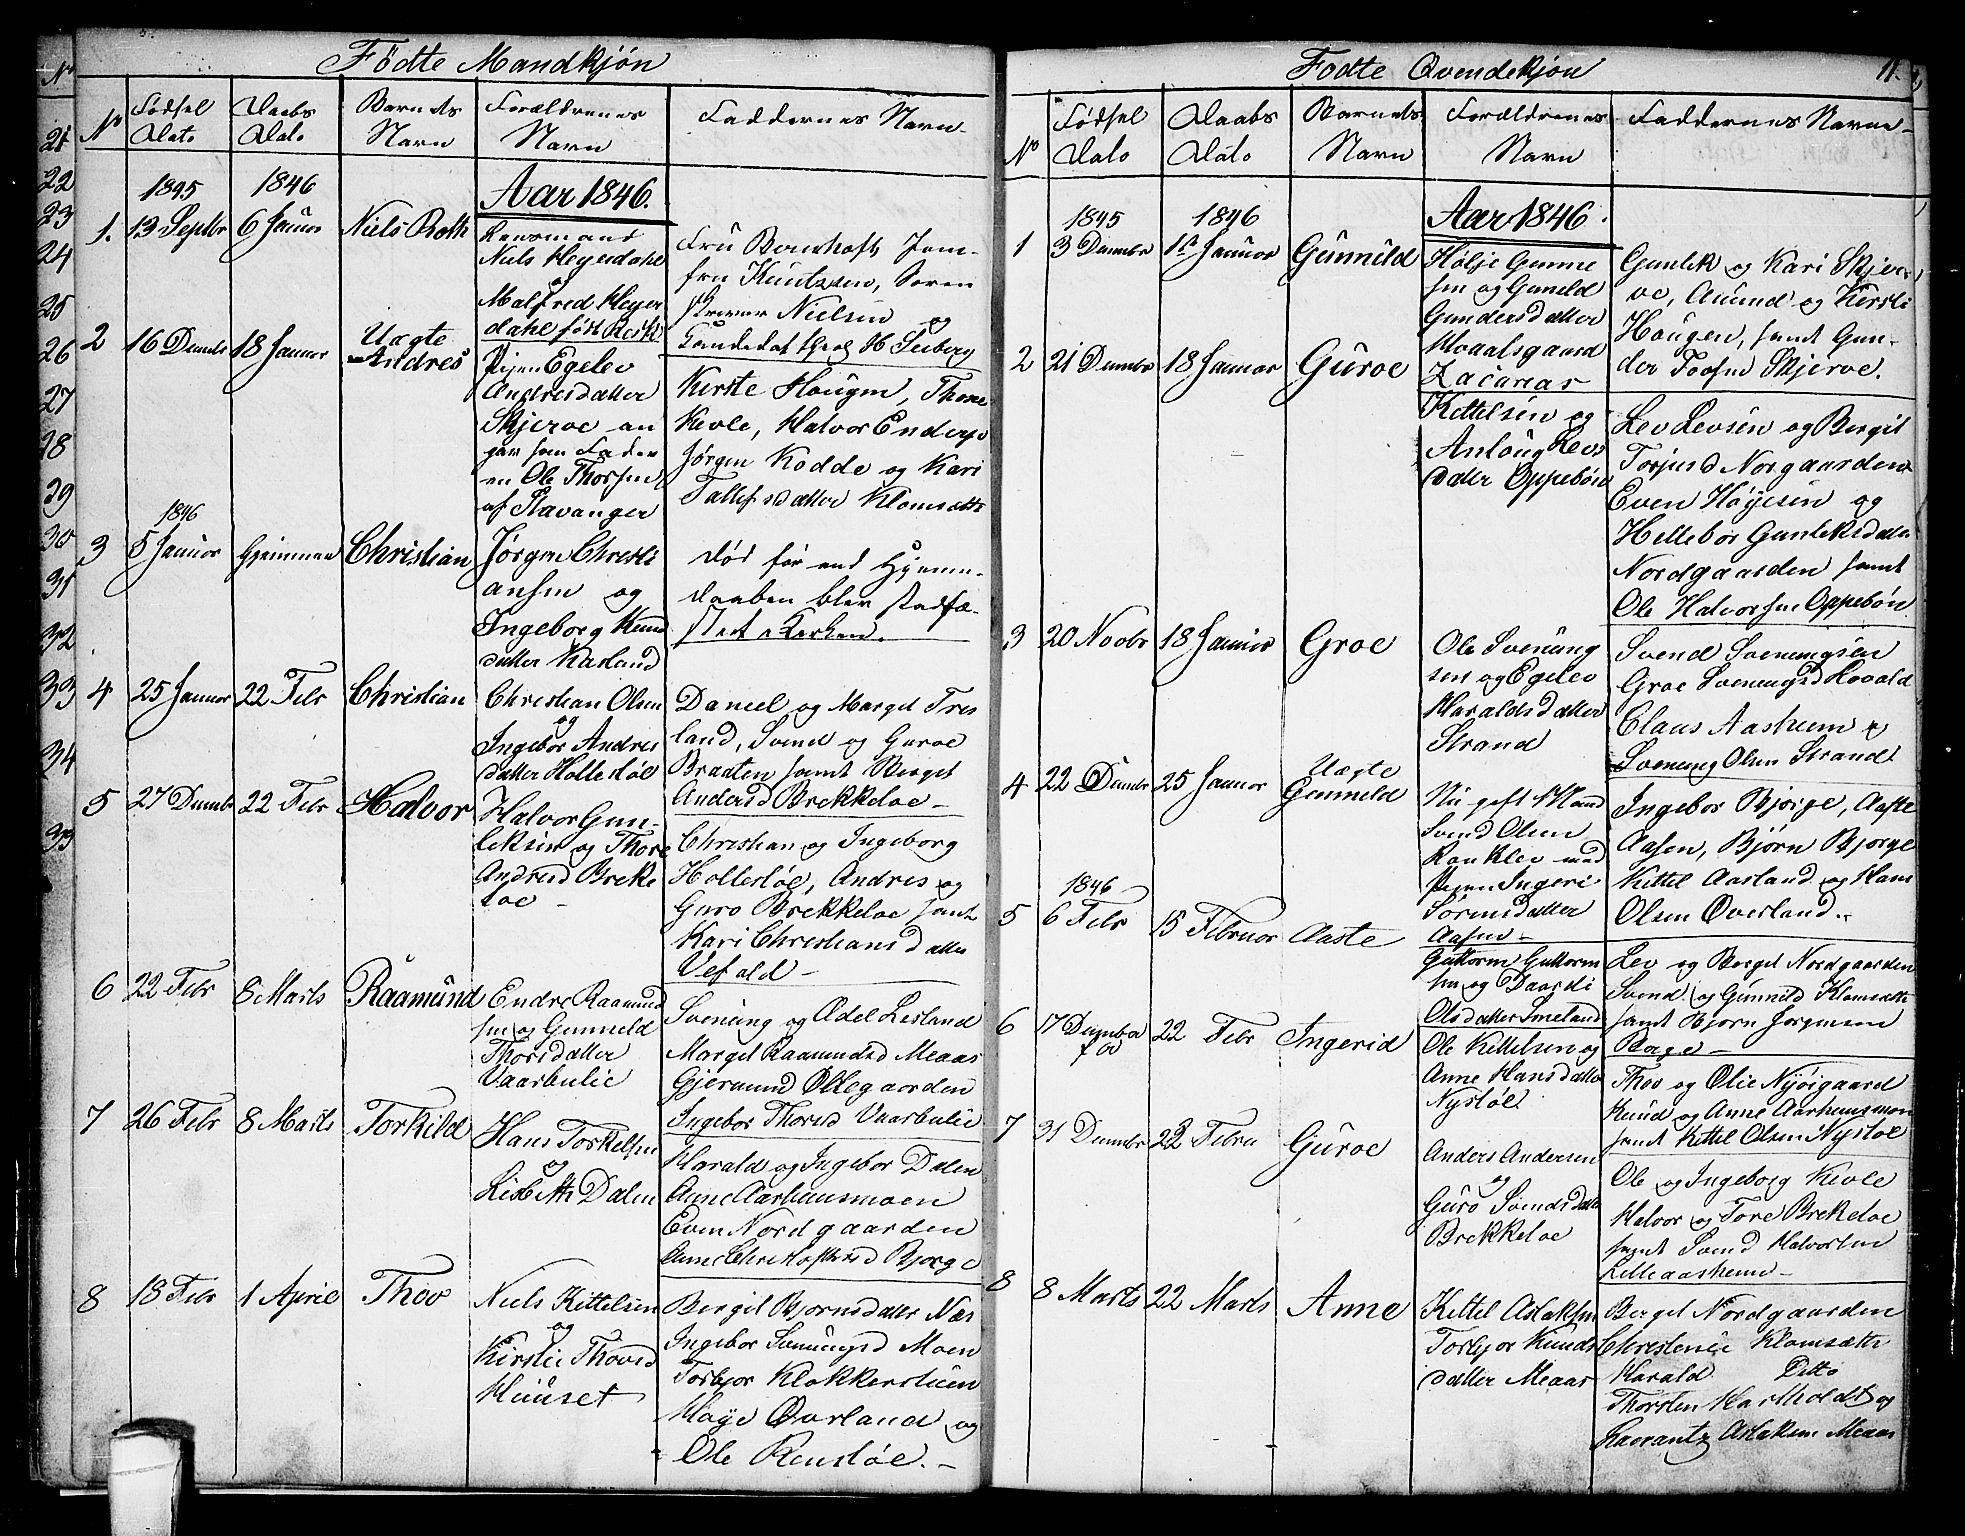 Födte Mandkjön
No
Fødsel Dato
Daabs Dato
Barnets Navn
Forældrenes Navn
Faddernes Navn
1845
1846
Aar 1846.
1. 13 Septbr 6 Januar Niels Roth
Lensmand
Niels Heyerdahl
og
Malfred Heyer
dahl født
Fru Bomhoft, Jom-
fru Kuntzsen, Soren
skriver Nielsen og
Candedat theol H
2 16 Decmbr 18 Januar Uægte Andres
Pigen Egelev
Andresdatter
Skjeroe an
gav som Fader
en Ole Thorsen
af Stavanger
Kerste Hougen, Thone
Kevle, Halvor Enders
Jørgen Kodde og Kari
Tallefsdatter Klomsætt
1846
3 5 Januar Hjemmen Christian
Jørgen Christi
ansen og
Ingeborg Knud
datter Kasland
død før end Hjemme-
daaben blev stadfæ-
stet i Kerken.
4 25 Januar 22 Febr Christian
Christian Olsen
og
Ingebor Andres
datter Hollesløe
Daniel og Margit Tres
land, Svend og Guroe
Braaten samt Berget
Andersd Brekkeloe
5 27 Decmbr 22 Febr Halvor
Halvor Gun-
leksen og Thore
Andresd Breke
loe
Christian og Ingeborg
Hollesløe, Andres og
Guro Brekkeloe samt
Kari Christians datter
Vefald
6 22 Febr 8 Marts Raamund
Endre Raamund
sen og Gunneld
Thorsdatter
Vaarbulie
Svenung og Adel Lesland
Margit Raamundsd Meaas
Gjermund Ollegaarden
Ingebor Thorsd Vaarbulie
7 26 Febr 8 Marts Torkild
Hans Torkelsen
og
Lisbeth Dalen
Harald og Ingebor Dalen
Anne Aarhuusmoen
Even Nordgaarden
Anne Christoffersd Bjorge
8 18 Febr 1 April Thov
Niels Kittelsen
og
Kirstie Thovsd
Huuset
Bergit Bjornsdatter Næs
Ingebor Svenungsd Moen
Torbjor Klokkerstuen
Høye Overland og
Ole Rensløe.
Fodte Qvendekjön
11.
No
Fødsel Dato
Daabs Dato
Barnets Navn
Forældrenes Navn
Faddernes Navne
1845
1846
Aar 1846.
1 3 Decmbr 1 Januar Gunnild
Holje Gunne
sen og Guneld
Gundersdatter
Moaalsgaard
Gunlek og Kari Skjer-
oe, Amund og Kersti
Hougen, samt Gun-
der Toosen Skjeroe.
2 21 Decmbr 18 Januar Guroe
Zacarias
Kettelsen og
Anloug Levs
datter Oppebøen
Lev Levsen og Bergit
Torjusd Norgaarden
Even Høyesen og
Hellebor Gunleksdatter
Nordgaarden samt
Ole Halvorsen Oppebön
3 20 Novbr 18 Januar Groe
Ole Svenung
sen og Egelev
Haraldsdatter
Strand
Svend Svenungsen
Groe Svenungsd Hovald
Claus Aasheim og
Svenung Olsen Strand
4 22 Decmbr 25 Januar Uægte Gunneld
Nu gift Mand
Svend Olsen
Rauklev med
Pigen Ingeri
Sørensdatter
Aasen
Ingebor Bjorge, Aaste
Aasen, Bjørn Bjorge
Kittel Aasland og Hans
Olsen Overland.
1846
5 6 Febr 15 Februar Aaste
Guttorm Guttorm
sen og Taardi
Olsdatter Smeland
Lev og Bergit Nordgaarden
Svend og Gunnild Klomsætt
samt Bjorn Jørgensen
Borge
6 17 Decmbr 22 Febr Ingerid
Ole Kittelsen og
Anne Hansdatter
Nysløe.
Thov og Olie Nyöigaard
Knud og Anne Aarhuusmoen
samt Kittel Olsen Nysloe
7 31 Decmbr 22 Febru Guroe
Anders Andersen
og
Guro Svendsdatter
Brekkeloe
Ole og Ingeborg Kevle
Halvor og Tore Brekeloe
samt Svend Halvorsen
Lilleaasheim
8 8 Marts 22 Marts Anne
Kettel Aslaksen
Torbjor Knuds
datter Meaas
Berget Nordgaarden
Christence Klomsætt
Harald Ditto
Thorsten Hartholdt og
Laurantz Aslaksen Meaas
21
22
23
24
25
26
27
28
29
30
31
32
33
34